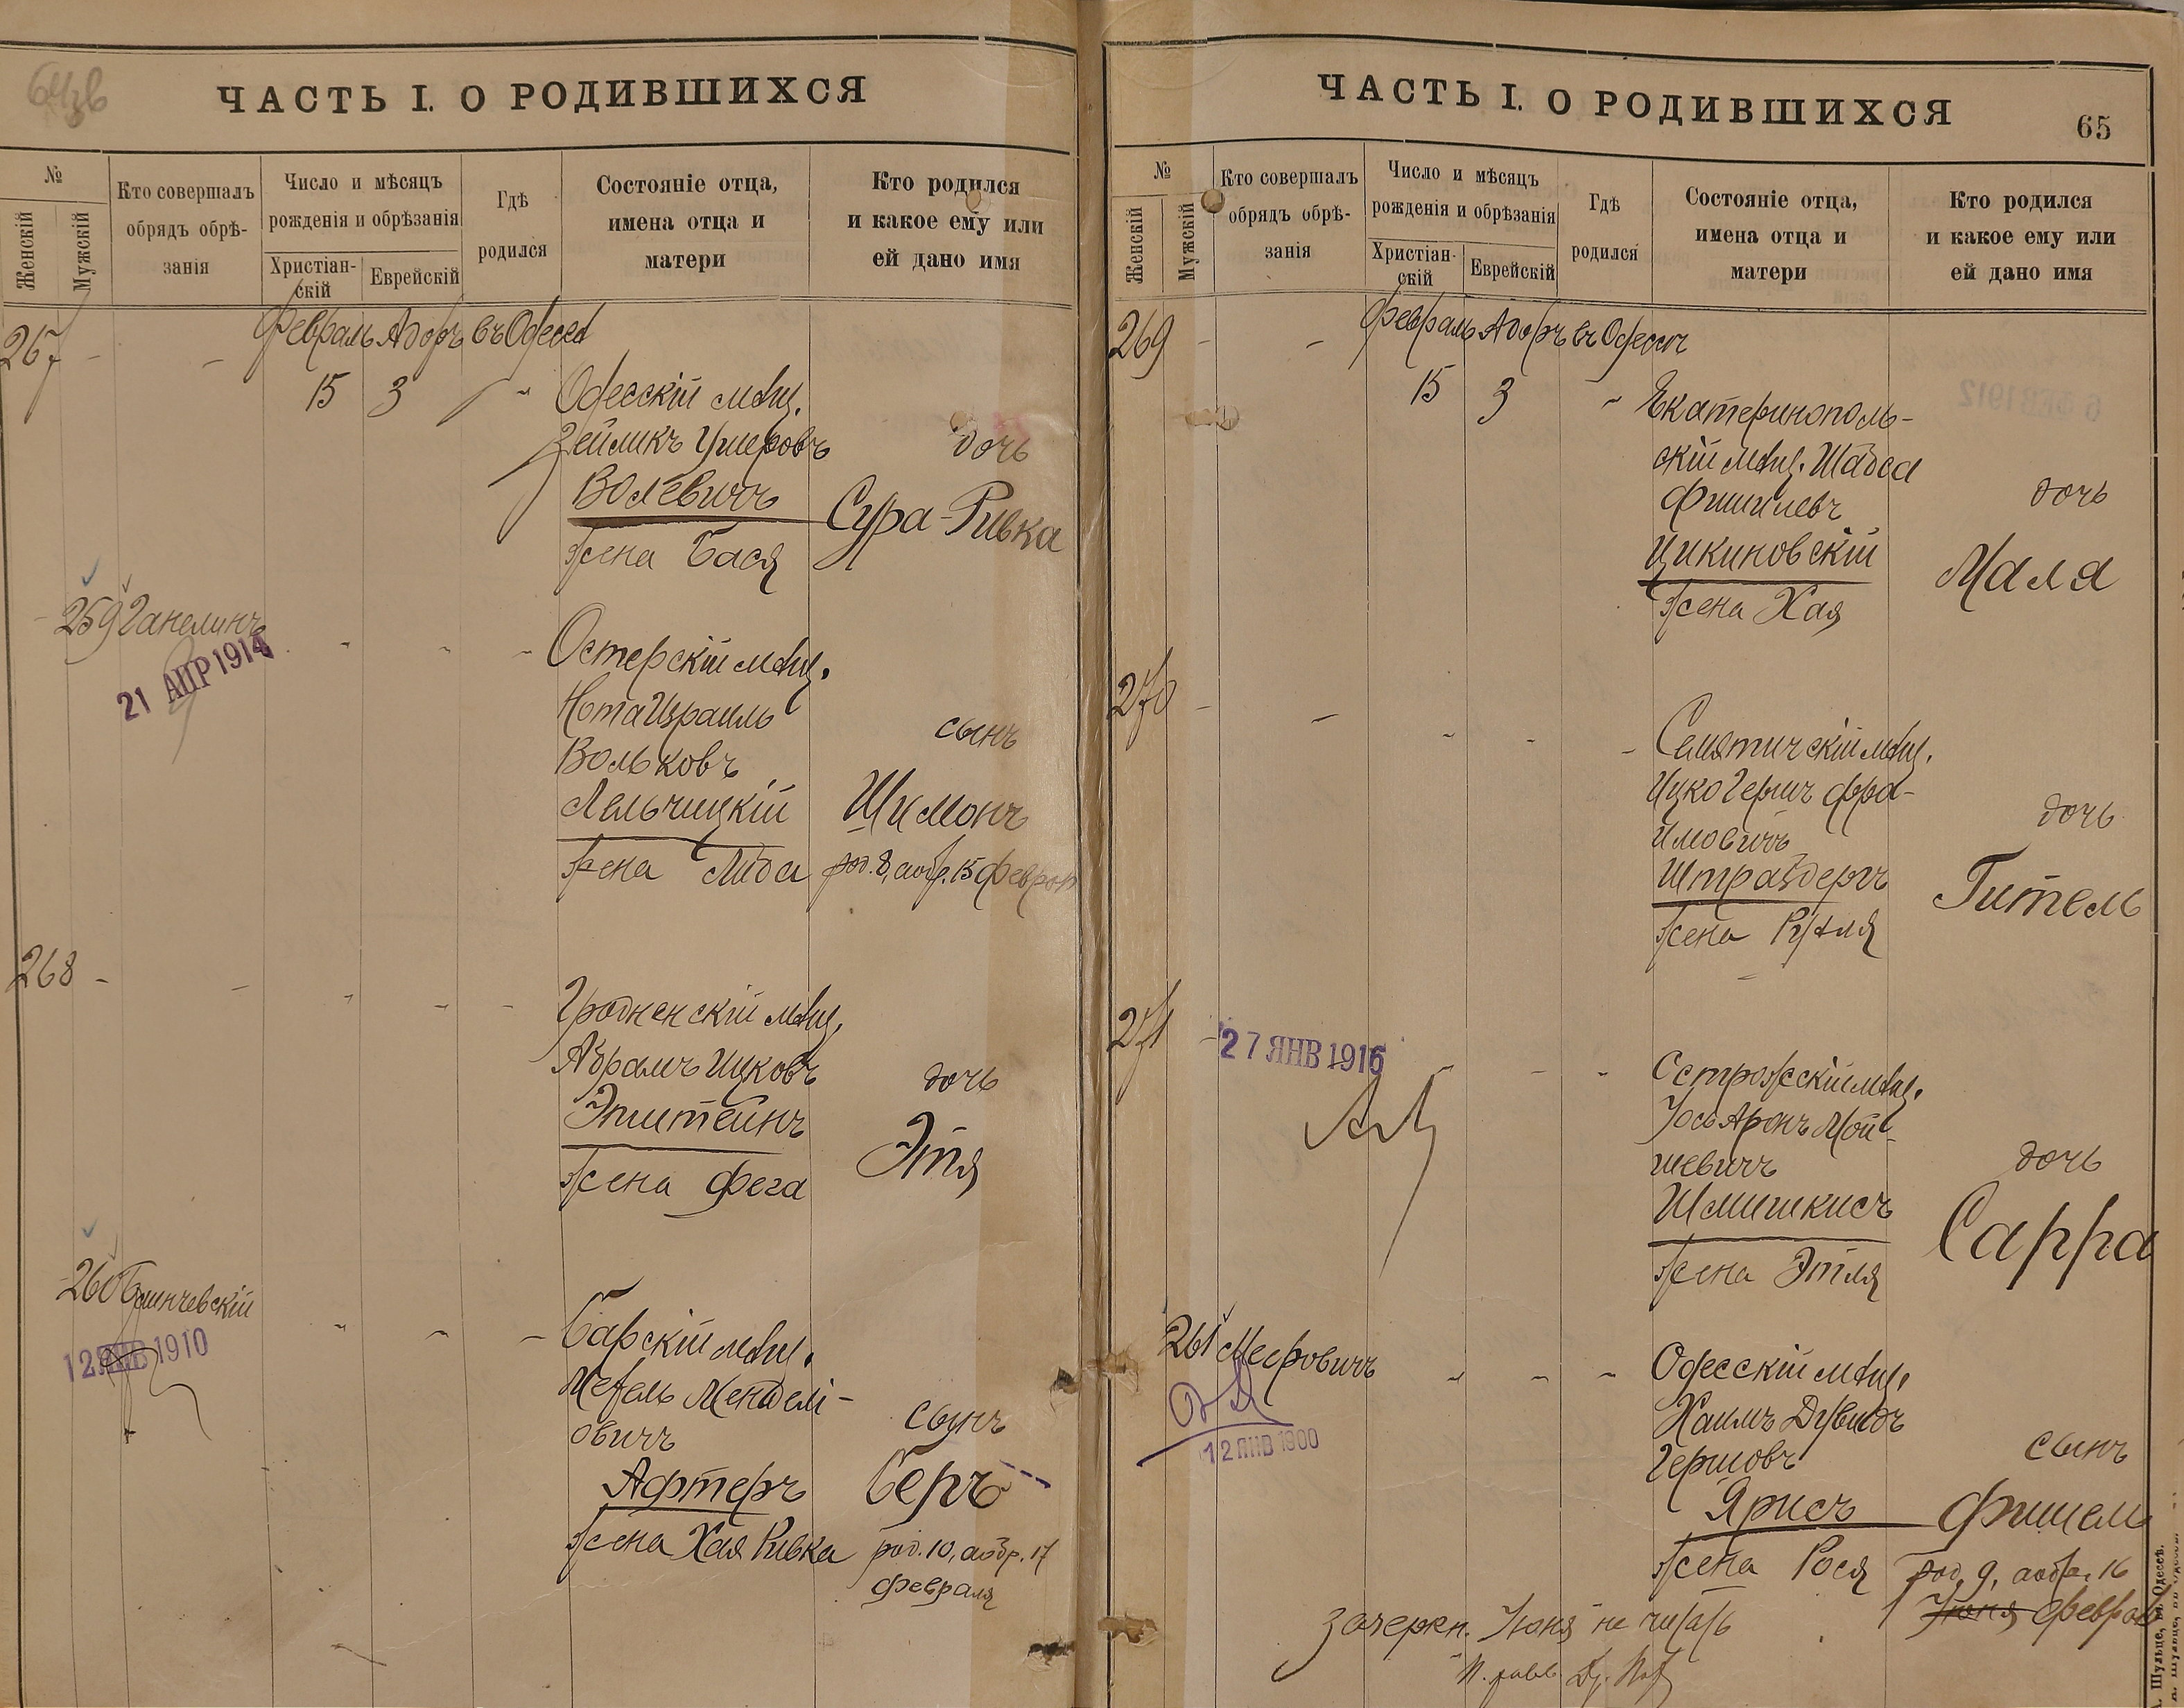 ЧАСТЬ I. О РОДИВШИХСЯ
№
Женскій
Мужскій
Кто совершалъ
обрядъ обрѣ-
занія
Число и мѣсяцъ
рожденія и обрѣзанія
Христіан-
скій
Еврейскій
Гдѣ
родился
Состояніе отца,
имена отца и
матери
Кто родился
и какое ему или
ей дано имя
267 - - Февраль Адаръ въ Одессѣ
15 3 "
Одесскій мѣщ.
Зейликъ Ушеровъ
Волевичъ
жена Бася
дочь
Сура-Ривка
259 Ганелинъ
21 АПР 1914
Остерскій мѣщ.
Нота Израиль
Вольковъ
Лельчицкій
жена Либа
сынъ
Шимонъ
род. 8, а обр. 15 февраля
268 - -
Гродненскій мѣщ.
Абрамъ Ицковъ
Эпштейнъ
жена Фейга
дочь
Этя
260
12 ЯНВ 1910
Барскій мѣщ.
Менделі-
овичъ
Афтеръ
жена Хая Ривка
сынъ
Беръ
род. 10, а обр. 17
февраля
ЧАСТЬ I. О РОДИВШИХСЯ
65
№
Женскій
Мужскій
Кто совершалъ
обрядъ обрѣ-
занія
Число и мѣсяцъ
рожденія и обрѣзанія
Христіан-
скій
Еврейскій
Гдѣ
родился
Состояніе отца,
имена отца и
матери
Кто родился
и какое ему или
ей дано имя
269 - - Февраль Адаръ въ Одессѣ
15 3 "
Екатеринополь-
скій мѣщ. Шабса
Фишилевъ
Цикиновскій
жена Хая
дочь
Маля
270 - -
Семятичскій мѣщ.
Ицко Гершъ Фро-
имовичъ
жена Рухля
дочь
Гитель
271 -
27 ЯНВ 1916
Острожскій мѣщ.
Іось Аронъ Мой-
шевичъ
Шмишкисъ
жена Этля
дочь
Сарра
261 Мееровичъ
12 ЯНВ 1900
Одесскій мѣщ.
Хаимъ Дувидъ
Гершовъ
Ярисъ
жена Рося
сынъ
Фишель
род. 9, а обр. 16
Іюня февраля
зачеркн. "Іюня" не читать